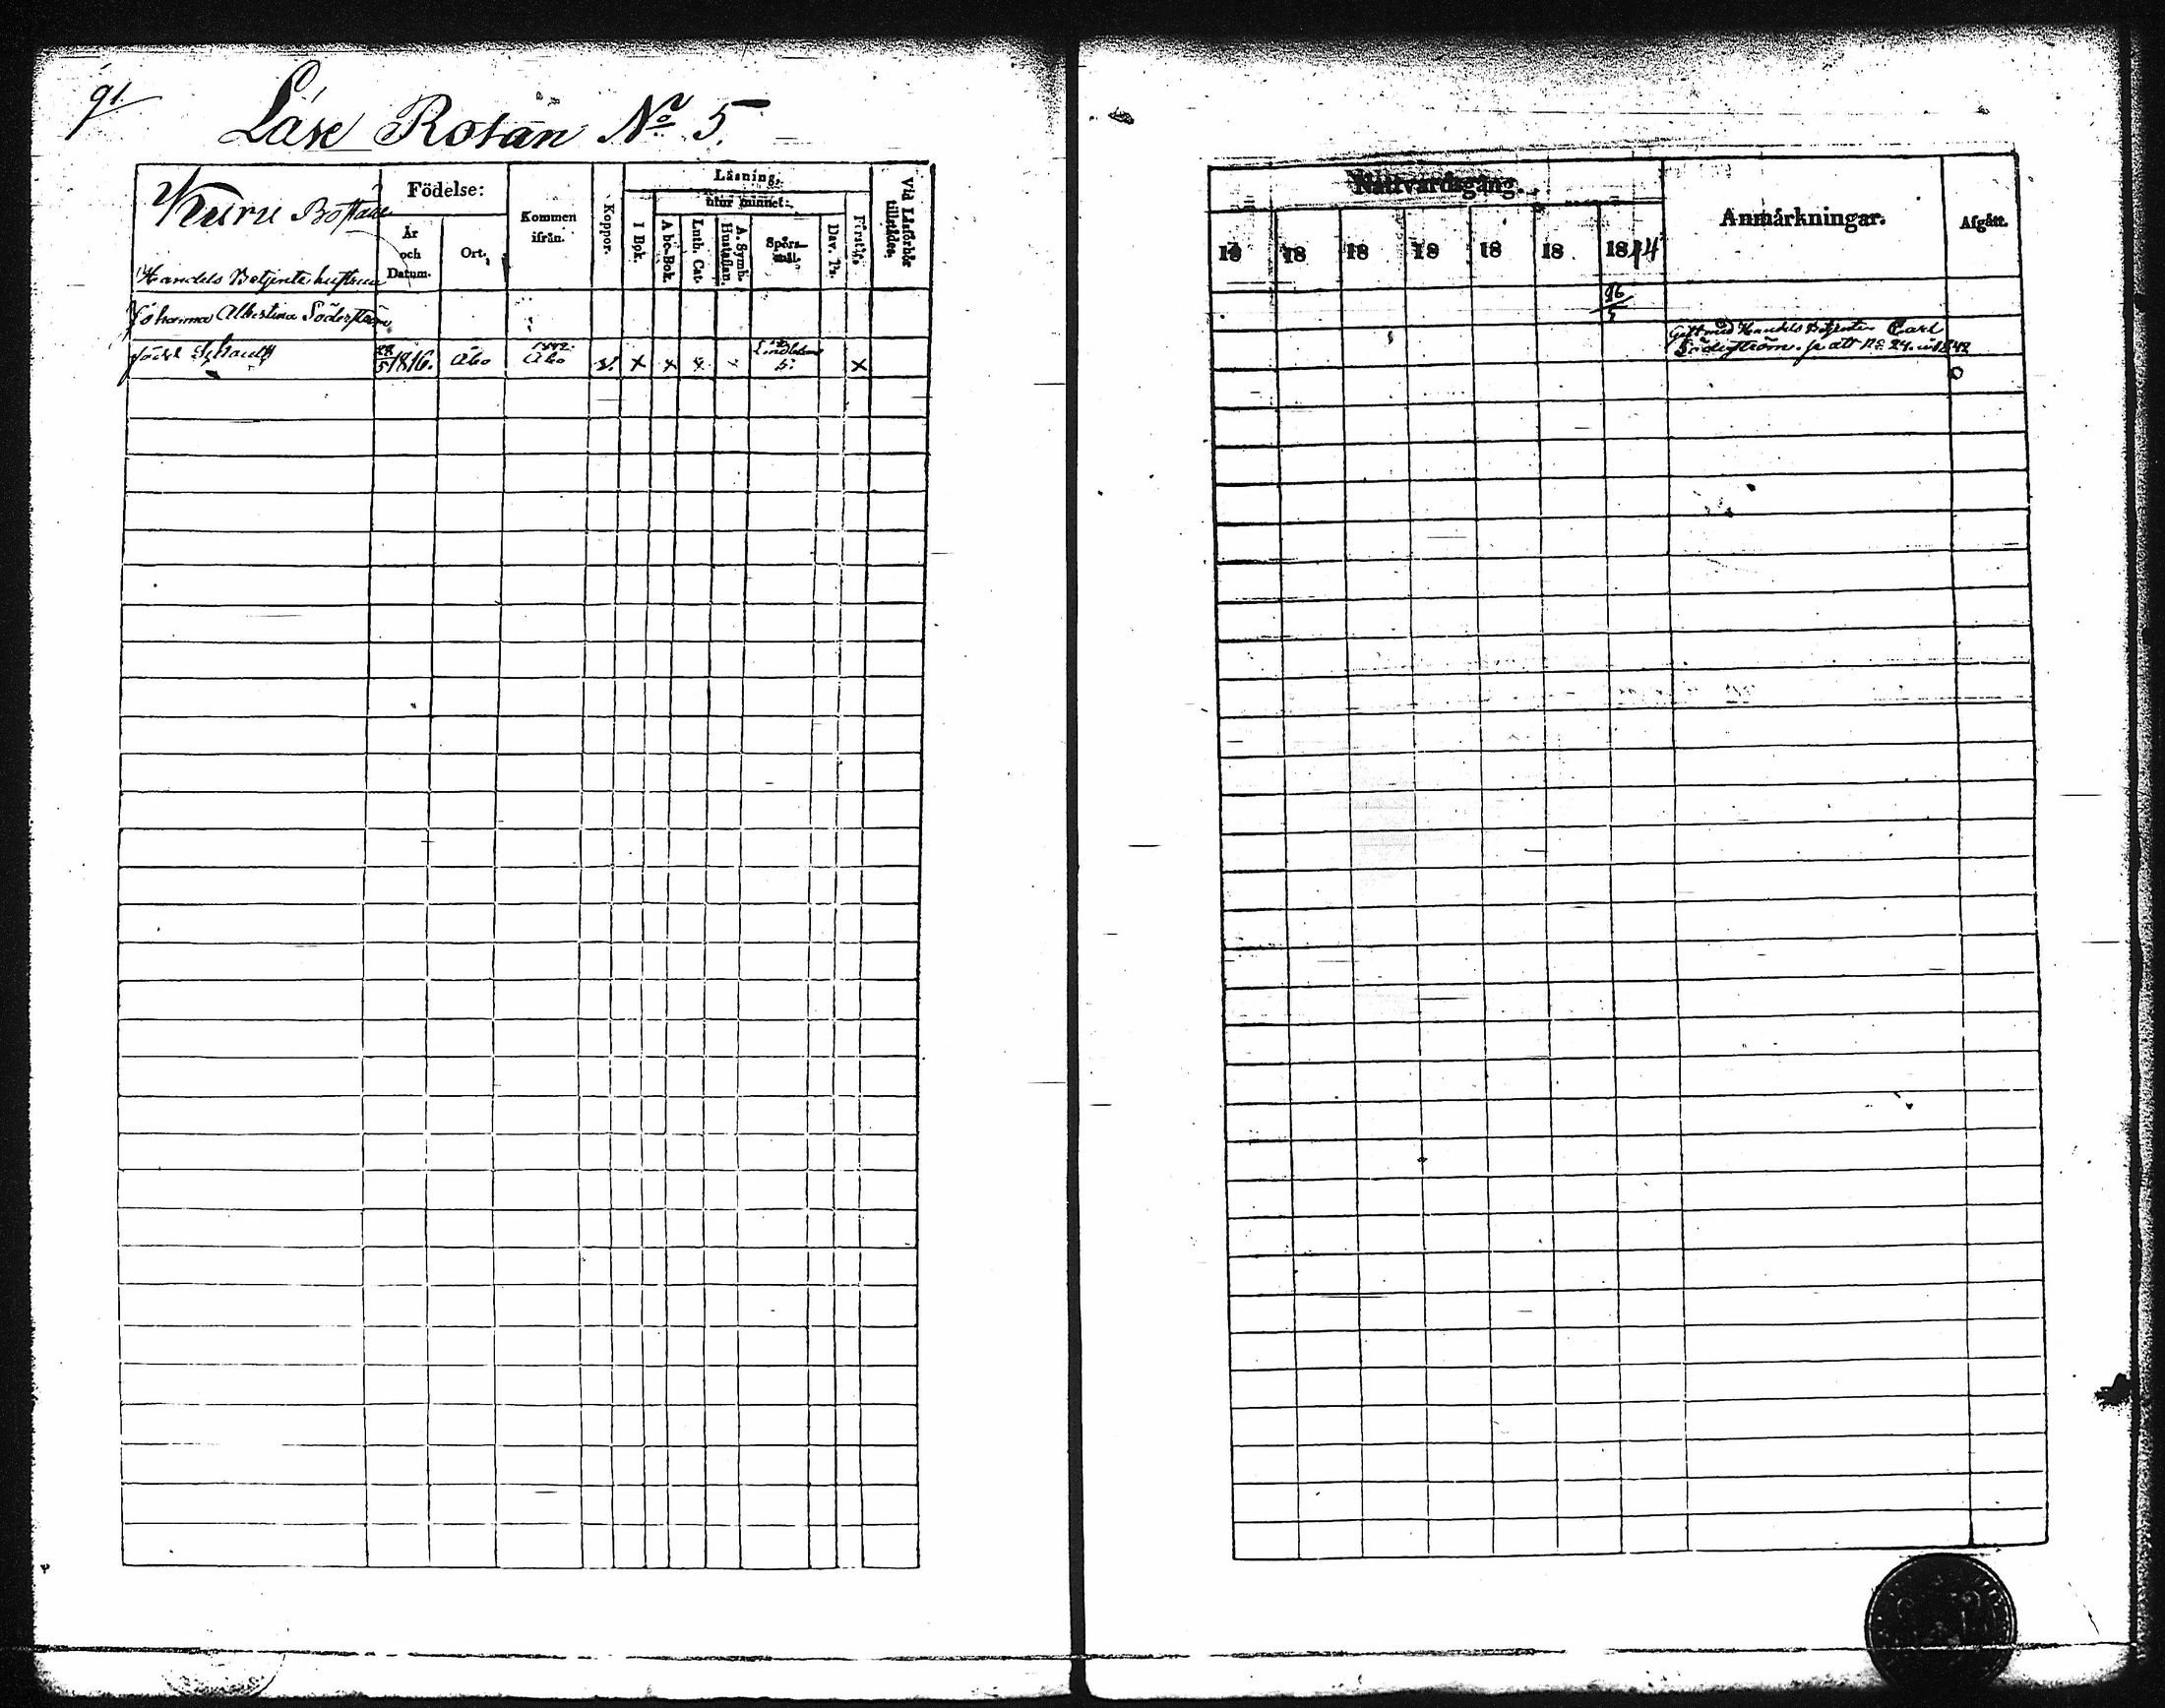 91.
Läse Rotan No 5.
Kuru Boställ
Födelse:
År och Datum.
Ort.
Kommen ifrån.
Koppor.
Läsning,
utur minnet:
I Bok.
A be-Bok.
Luth. Cat.
A. Symb. Hustaflan.
Spörs-mål.
Dav. Ps.
Förstår
Vid Läsförhör tillstädes.
Handels Betjente hustrun
Johanna Albertina Söderström
född Schault
28/5 1816.
Åbo
1842
Åbo
v. x x x x
Lindblom
5.
x
Nattvardsgång.
18 18 18 18 18 18 1844
Anmärkningar.
Afgått.
26/5
Gift med Handels Betjenten Carl
Söderström. p. att No 24. 1842